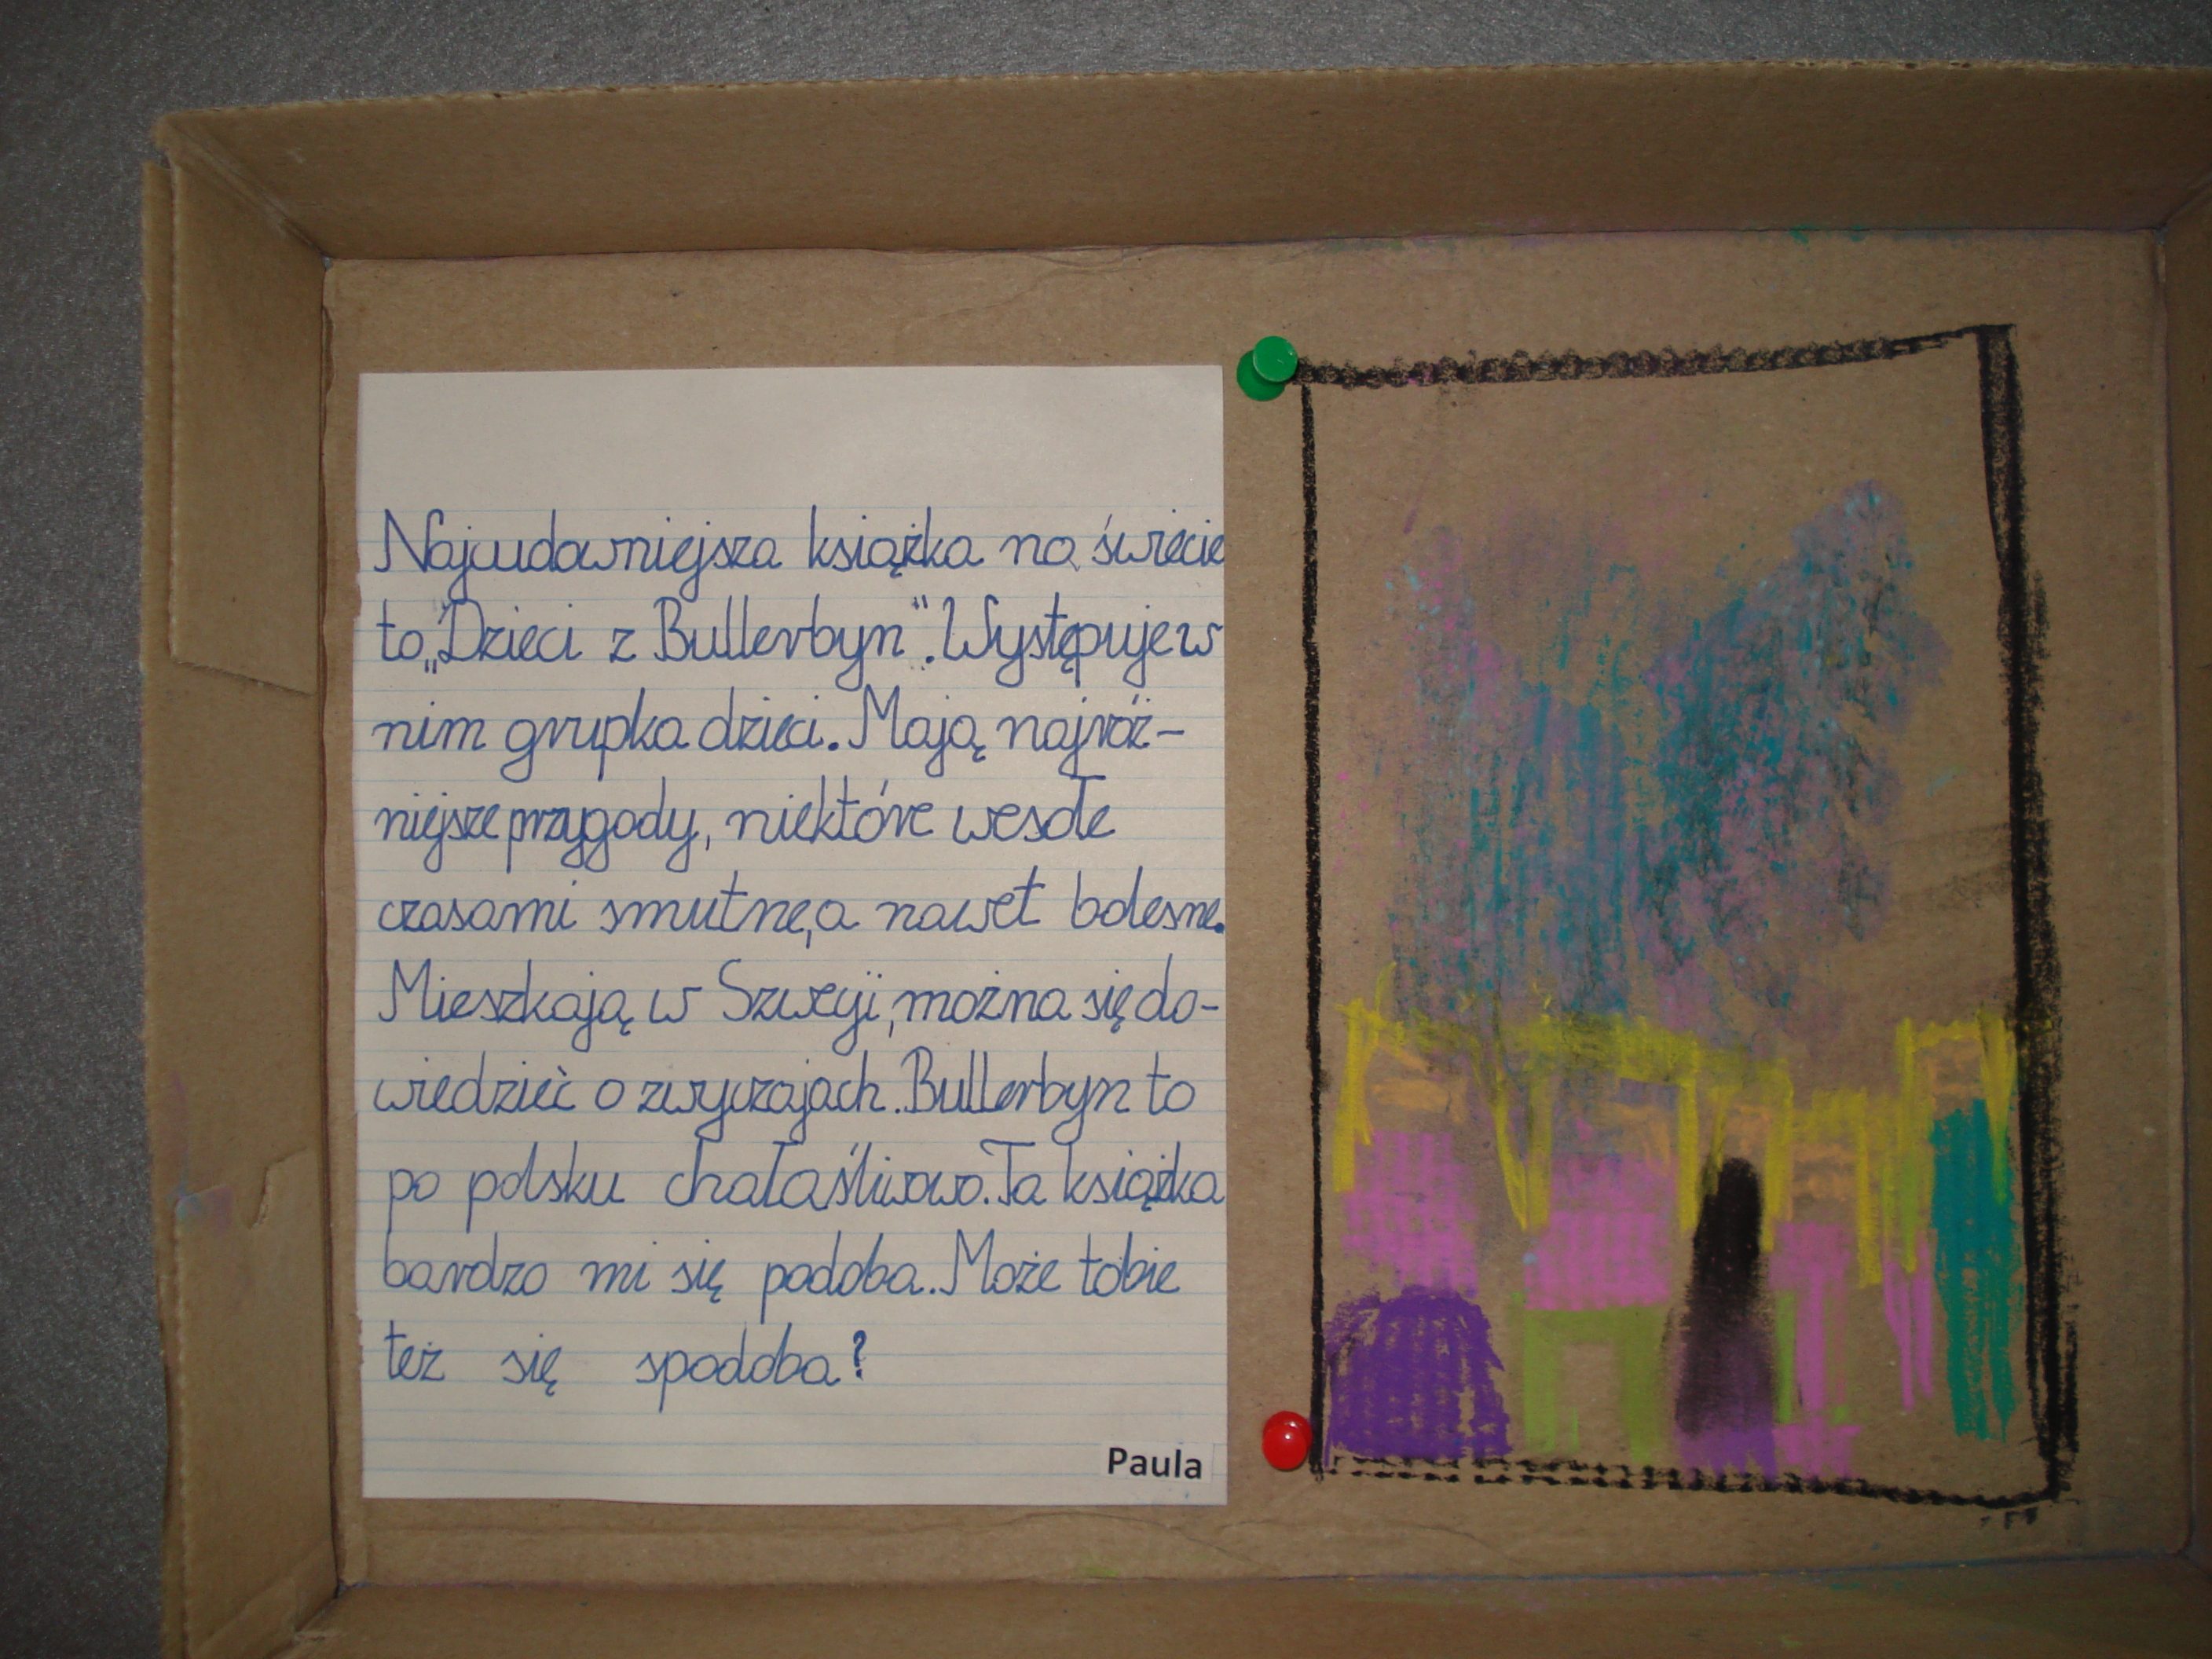 Najcudowniejsza książka na świecie
to „Dzieci z Bullerbyn". Występuje w
nim grupka dzieci. Mają najróż-
niejsze przygody, niektóre wesołe
czasami smutne, a nawet bolesne.
Mieszkają w Szwecji, można się do-
wiedzieć o zwyczajach. Bullerbyn to
po polsku chałaśliwowo. Ta książka
bardzo mi się podoba. Może tobie
też się spodoba?
Paula